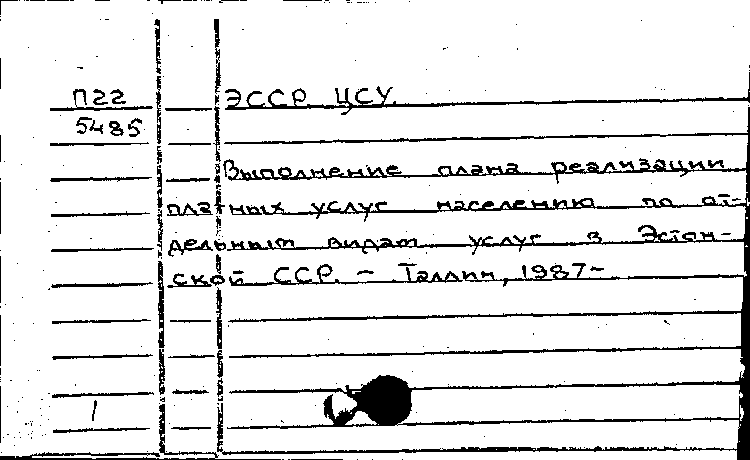 П22 ЭССР ЦСУ.
5485
Выполнение плана реализации
платных услуг населению по от-
дельным видам услуг в Эстон-
ской ССР. – Таллин, 1987–
1